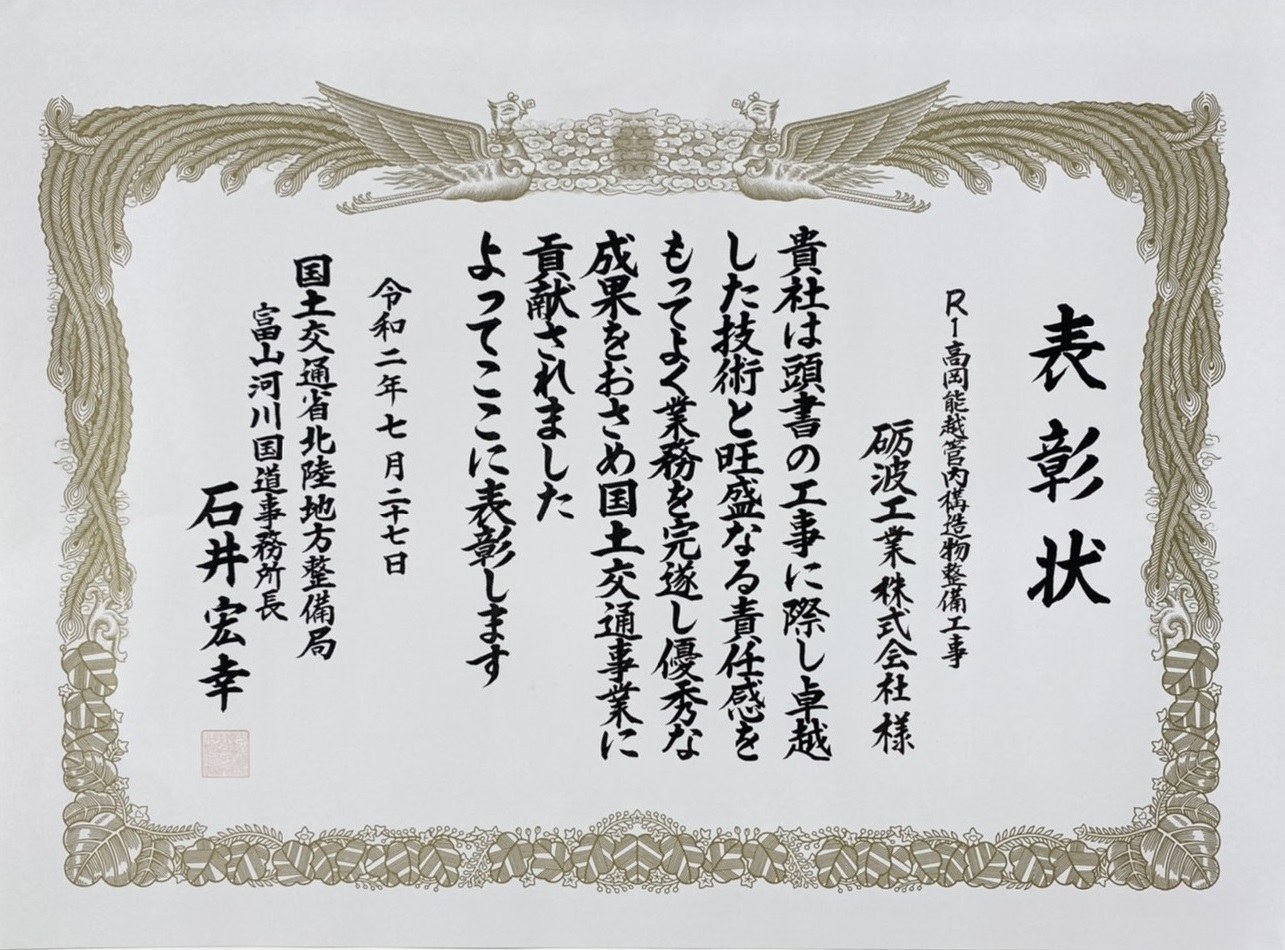 表彰状
R1高岡能越管内構造物整備工事
砺波工業株式会社 様
貴社は頭書の工事に際し卓越
した技術と旺盛なる責任感を
もってよく業務を完遂し優秀な
成果をおさめ国土交通事業に
貢献されました
よってここに表彰します
令和二年七月二十七日
国土交通省北陸地方整備局
富山河川国道事務所長
石井宏幸